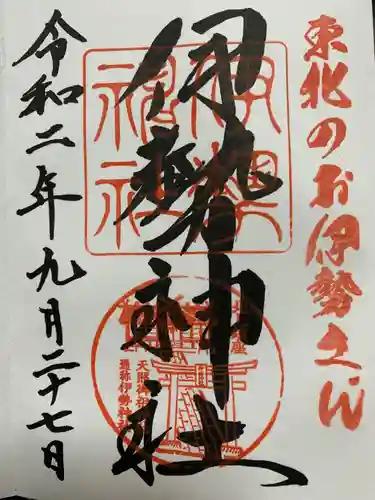 東北のお伊勢さん
伊勢神社
令和二年九月二十七日
天照御祖
通称伊勢神社